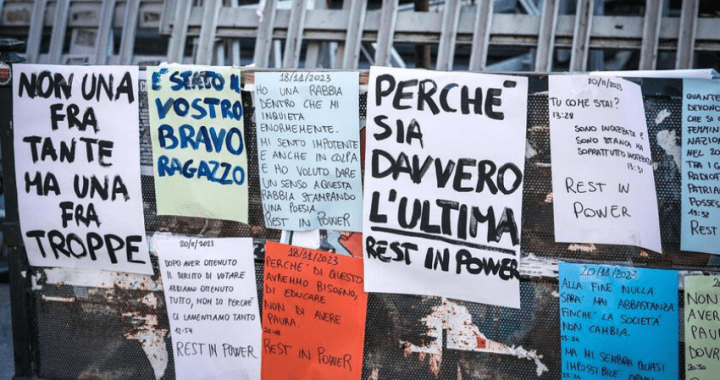 NON UNA
FRA
TANTE
MA UNA
FRA
TROPPE
È STATO IL
VOSTRO
BRAVO
RAGAZZO
18/11/2023
HO UNA RABBIA
DENTRO CHE MI
INQUIETA
ENORMEMENTE.
MI SENTO IMPOTENTE
E ANCHE IN COLPA
E HO VOLUTO DARE
UN SENSO A QUESTA
RABBIA STAMPANDO
UNA POESIA.
REST IN POWER
PERCHÉ
SIA
DAVVERO
L'ULTIMA
REST IN POWER
20/11/2023
TU COME STAI?
13:28
SONO INCAZZATA E
SONO STANCA MA
SOPRATTUTTO INCAZZATA
13:31
REST IN
POWER
QUANTE
DEVONO
CHE SI
FEMMIN
NAZION
NEL 20
TRA I
RADICA
PATRIA
POSSES
REST I
20/11/2023
DOPO AVER OTTENUTO
IL DIRITTO DI VOTARE
ABBIAMO OTTENUTO
TUTTO, NON SO PERCHÉ
CI LAMENTIAMO TANTO
REST IN POWER
18/11/2023
PERCHÈ DI QUESTO
AVREMMO BISOGNO,
DI EDUCARE
NON DI AVERE
PAURA.
REST IN POWER
20/11/2023
ALLA FINE NULLA
SARÀ MAI ABBASTANZA
FINCHÈ LA SOCIETÀ
NON CAMBIA.
MA MI SEMBRA QUASI
IMPOSSIBILE
NON
AVER
PAU
DOV